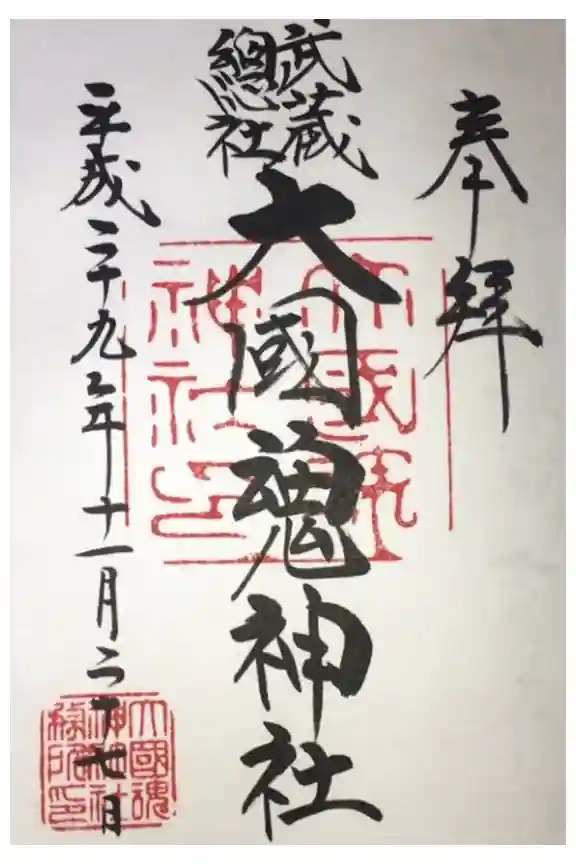 奉拝
武蔵
總社
大國魂神社
大國魂
神社印
平成二十九年十一月二十七日
大國魂
神社社
務所印